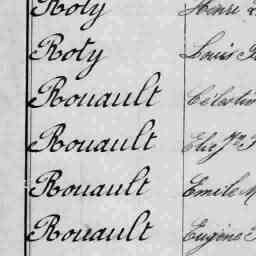 Roty Henri
Roty Louis
Rouault Célestin
Rouault
Rouault Emile M
Rouault Eugène